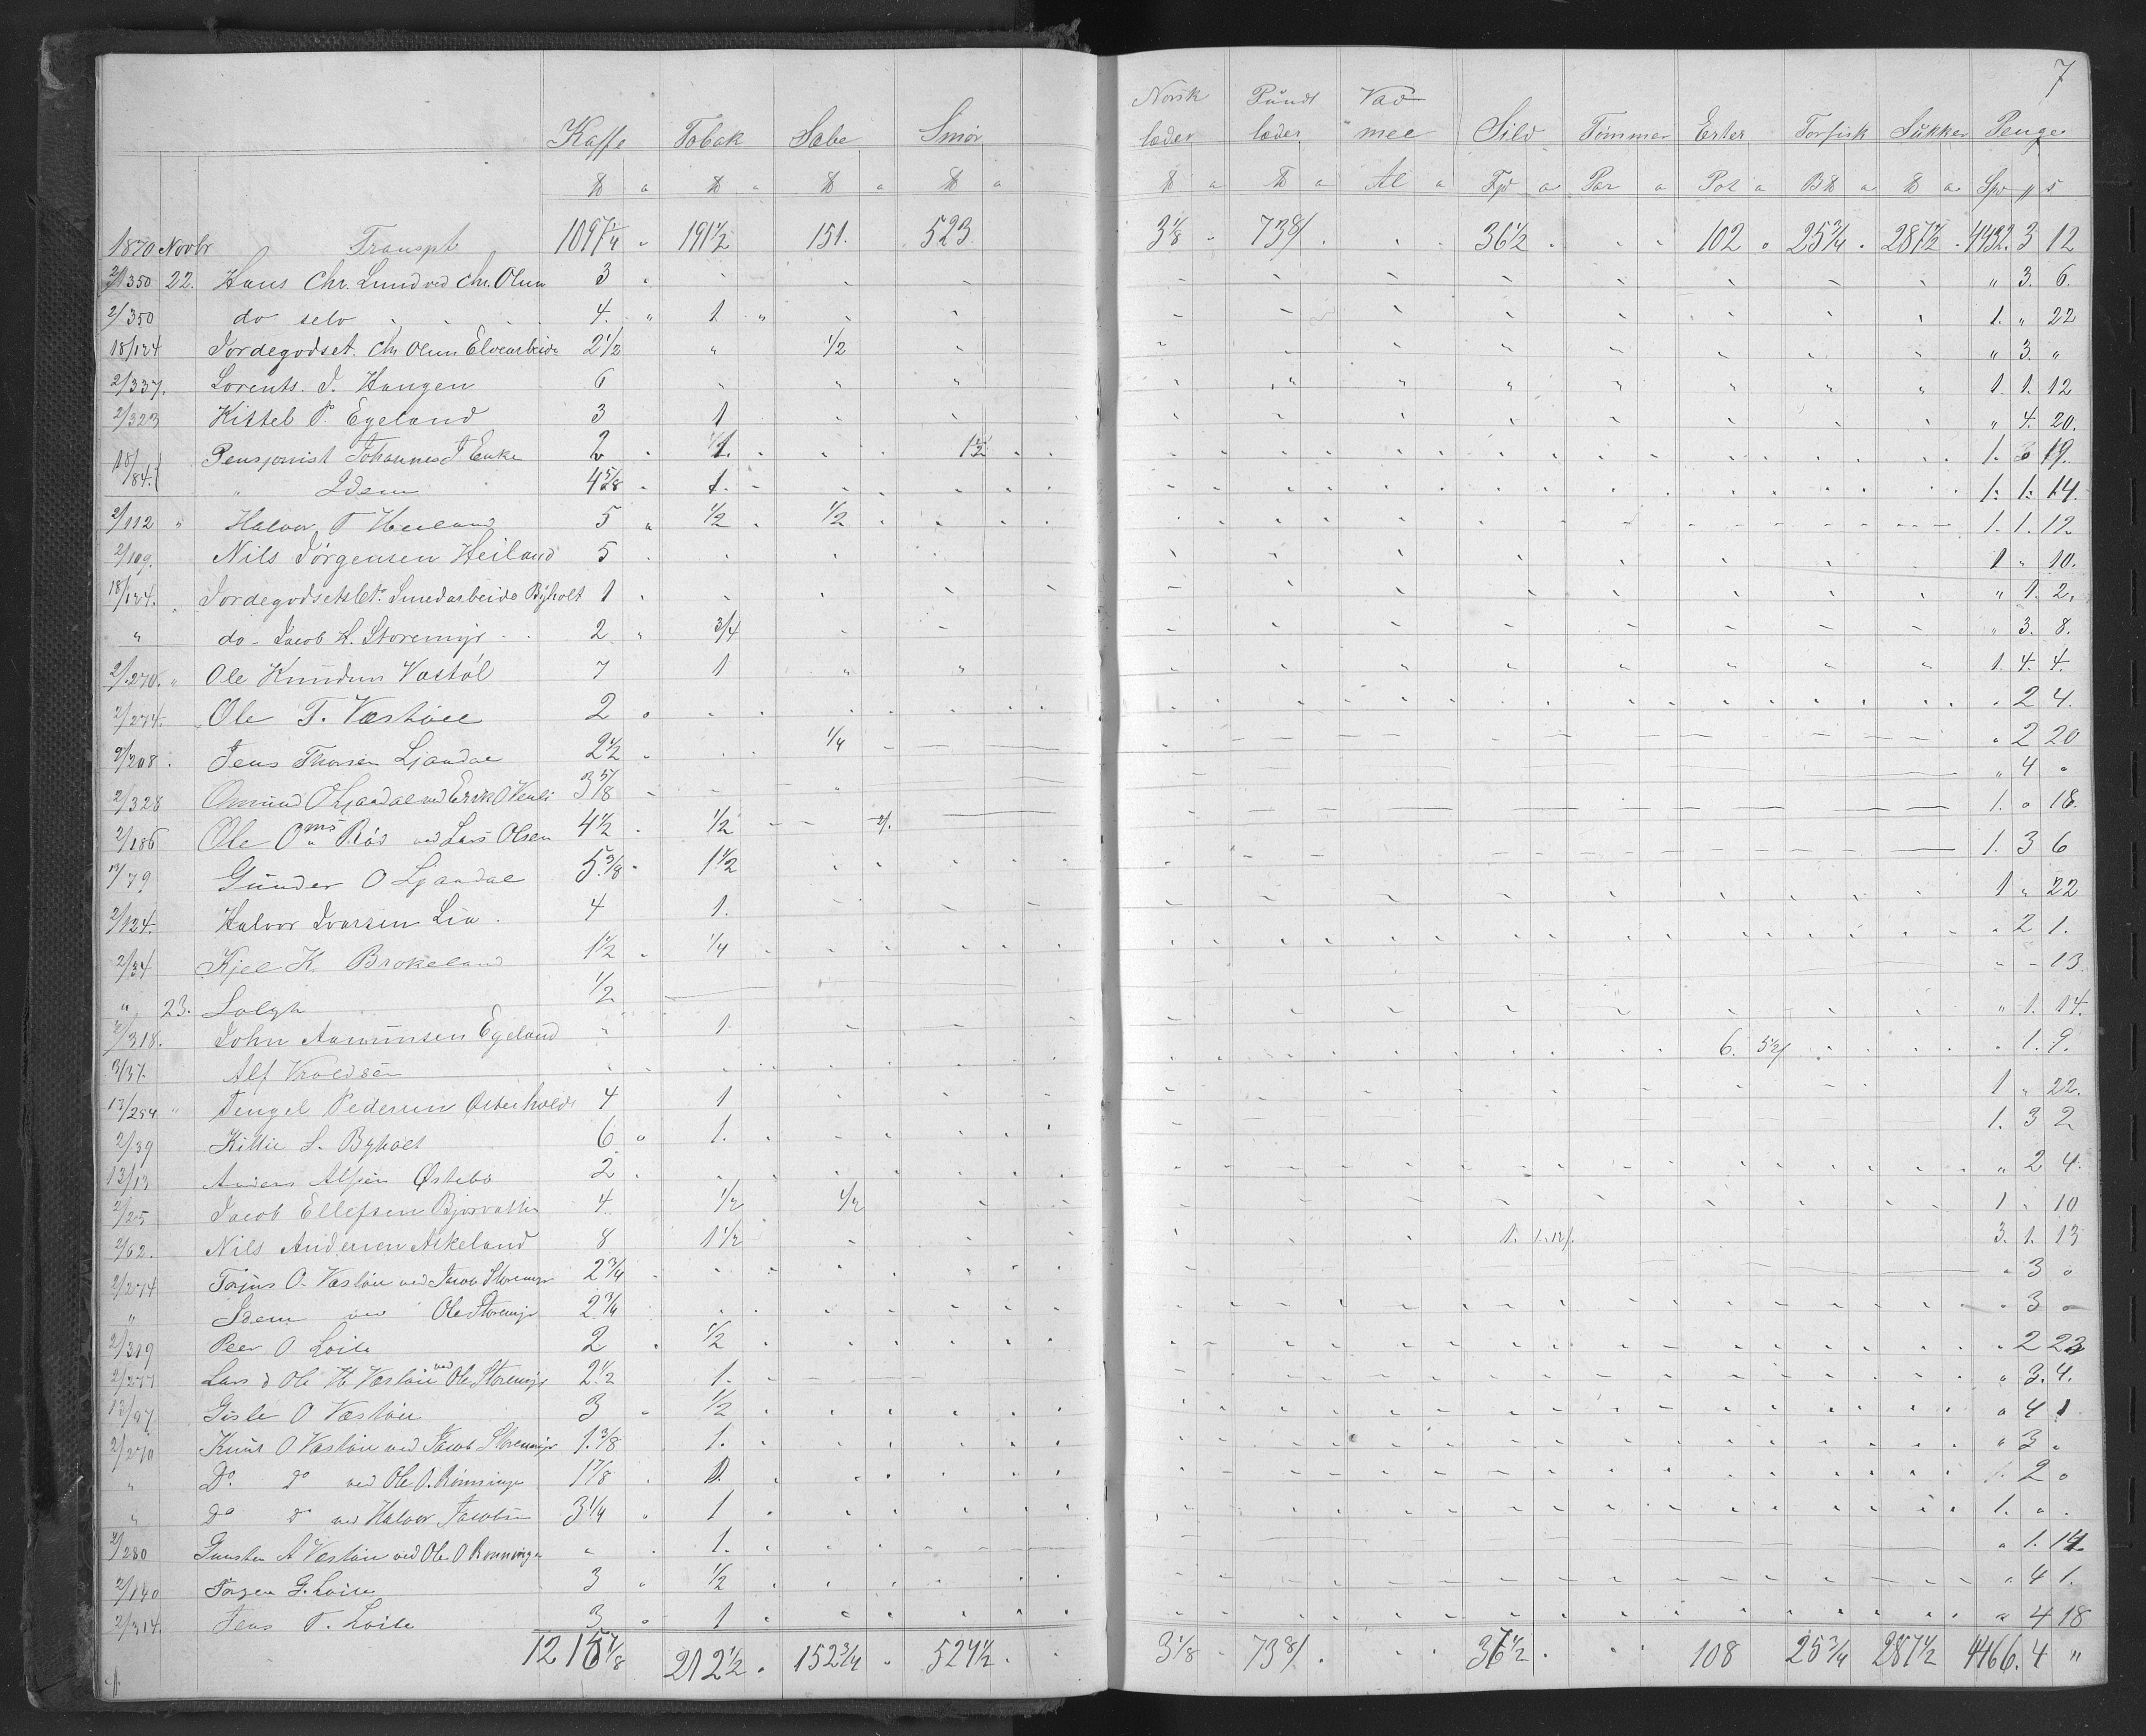 7
Kaffe Tobak Sæbe Smør Norsk læder Pundt læder Vadmel Sild Tømmer Erter Torfisk Sukker Penge
℔ ℔ ℔ ℔ ℔ ℔ Al Fjd Par Pot B℔ ℔ Spd
1870 Novbr Transpt 1097 1/4 191 1/2 151. 523. 3 1/8 73 36 1/2 102 25 3/4 287 1/2 4432. 3 12
2/350 22. Hans Chr. Lund ved Chr. Olsen 3 " 3. 6.
2/350 do selv 4. " 1. " 1. " 22
18/124 Jordegodset. Chr Olsen Elvearbeide 2 1/2 " 1/2 " 3. "
2/337. Lorents. J. Haugen 6 1. 1. 12
2/323 Kittel P. Egeland 3 1 " 4. 20.
18/84. Pensjonist Johannes J Enke 2 1. 1 1/2 1. 3 19.
" Idem 4 5/8 1. 1. 1. 14.
2/112 " Halvor T Heiland 5 1/2 1/2 1. 1. 12
2/109. Nils Jørgensen Heiland 5 1 " 10.
18/124. Jordegodsets Smedarbeide Byholt 1 " 1. 2.
" do - Jacob H. Storemyr 2 3/4 " 3. 8.
2/270. " Ole Knudsen Vastøl 7 1 1. 4. 4.
2/274. Ole T. Væstøl 2 2 4.
2/208. Jens Thorsen Ljaadal 2 1/2 1/4 2 20
2/328 Omund O Ljaadal ved Erik O Venli 3 5/8 " 4 "
2/186 Ole Oms Rød ved Lars Olsen 4 1/2 1/2 1. " 18.
13/79 Gunder O Ljaadal 5 3/8 1 1/2 1. 3 6
2/124. Halvor Ivarsen Lia. 4 1. 1 " 22
2/34 Kjel K. Brokeland 1 1/2 1/4 2 1.
" 23. Solgt 1/2 13.
2/318. John Aamunsen Egeland " 1 " 1. 14.
3/37. Alf 6. 5 1/2/ 1. 9.
13/254 " Tengel Pedersen Østerholdt 4 1 1 " 22.
2/39 Kittil S. Byholt 6 " 1. 1. 3 2
13/13 Anders Alfsen Østebø 2 " 2 4.
2/25 Jacob Ellefsen Bjorvatn 4. 1/2 1/2 1 " 10
2/62. Nils Andersen Askeland 8 1 1/2 1. 1.12/. 3. 1. 13
2/274 Torjus O. Væstøl ved Jacob Storemyr 2 3/4 3 "
" Idem ved Ole Storemyr 2 3/4 3 "
2/309 Peer O Loile 2 1/2 2 23
2/277 Lars & Ole H. Væstøl ved Ole Storemyr 2 1/2 1. " 3. 4.
13/97 Gisle O Væstøl 3 1/2 4 1
2/270 Knut O Væstøl ved Jacob Storemyr 1. 3/8 1. 3 "
" Do. do ved Ole O. Rønninge 1 7/8 1. 2 "
" Do do ved Halvor Jacobsen 3 1/4 1 1. " .
2/280 Gunsten A Væstøl ved Ole O Rønninge " 1. 1. 14
2/140 Torgen G. Loile 3 1/2 " 4 1.
2/314. Jens T. Loile 3. 1 " 4 18
1215 7/8 212 1/2 152 3/4 524 1/2 3 1/8 73 37 1/2 108 25 3/4 287 1/2 4466. 4 "